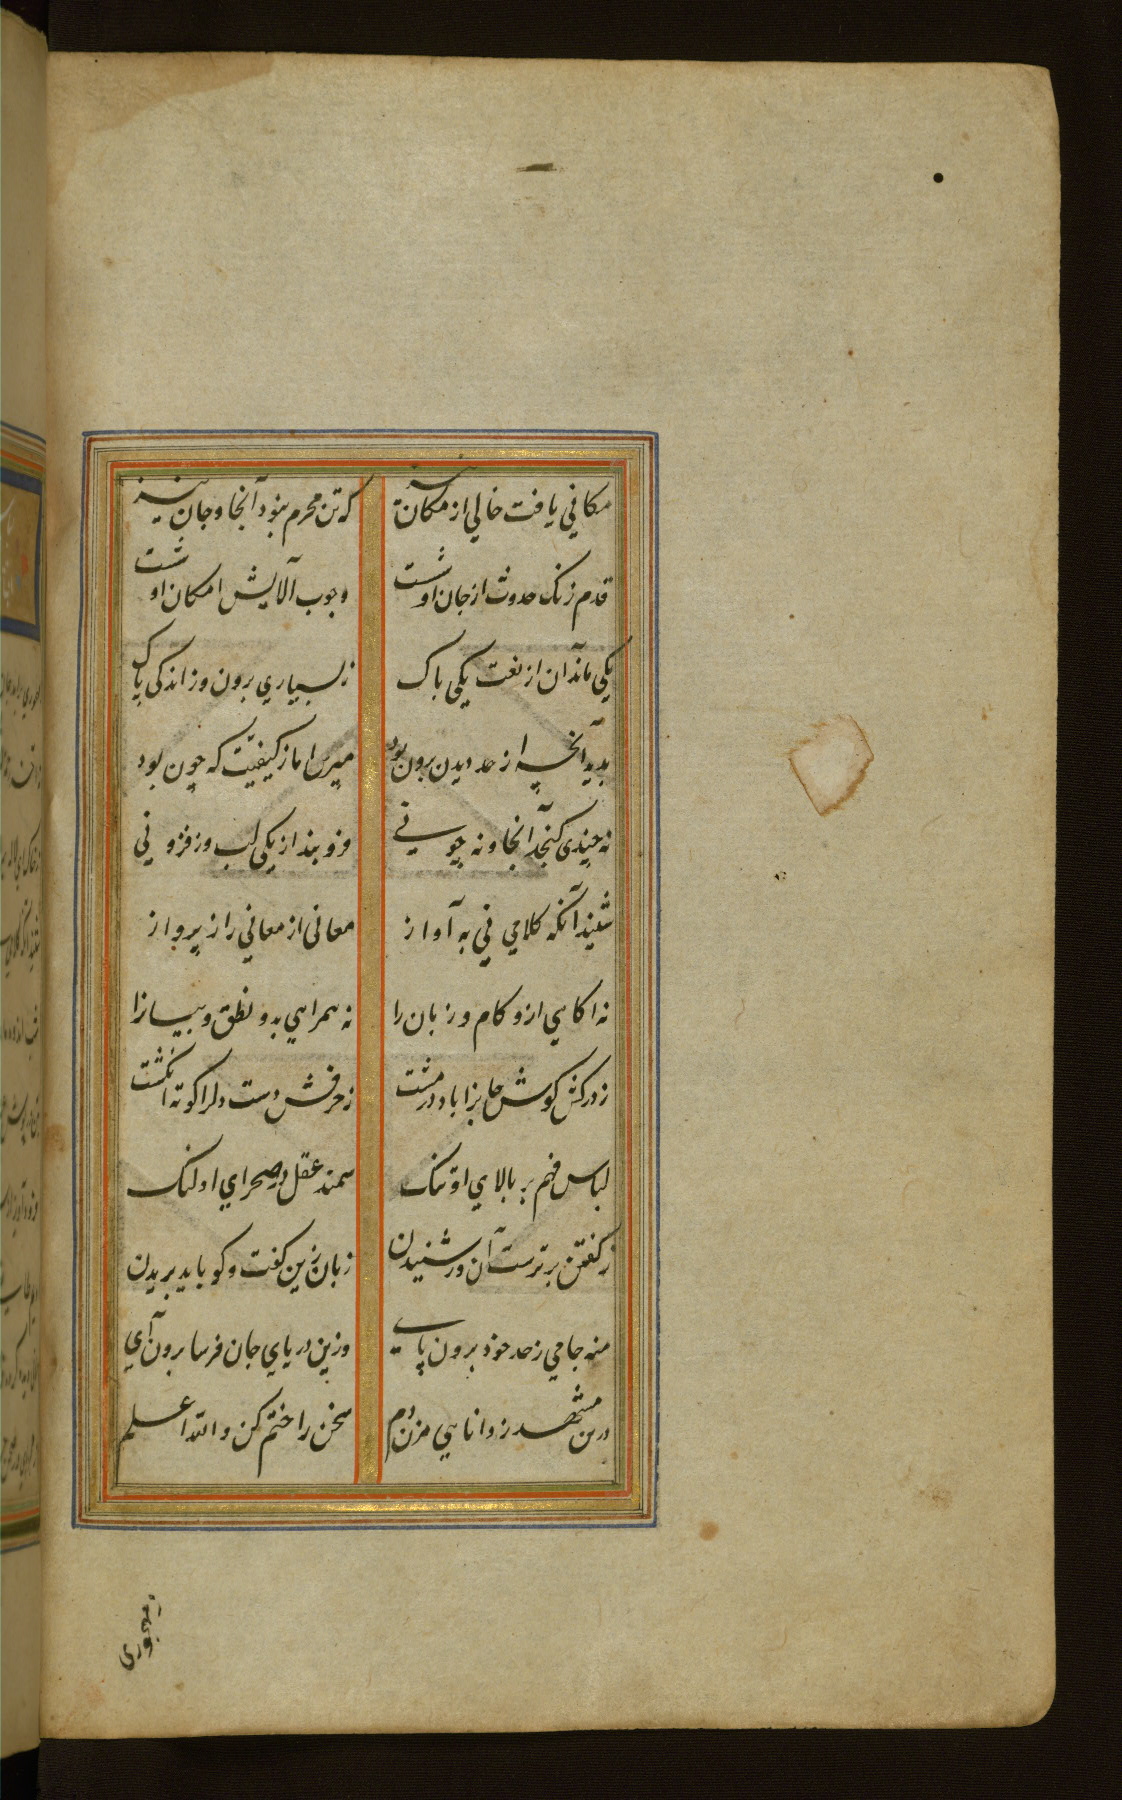 مکانی یافت خالی از مکان نیز که تن محرم نبود آنجا و جان نیز
قدم زنک حدوث از جان او شست وجوب آلایش امکان او شست
یکی ماند آن از نعت یکی پاک ز بسیاری برون وز اندکی پاک
بدید آنچه از حد دیدن برون بود مپرس اما ز کیفیت که چون بود
نه چندی کنجد آنجا و نه چونی فرو بند از یکی لب وز فزونی
شنید آنکه کلامی نی به آواز معانی از معانی راز پرواز
نه اکاهی ازو کام و زبان را نه همراهی بدو نطق و بیانرا
ز درکش کوش جانرا باد در مشت ز حرفش دست دلرا کوته انکشت
لباس فهم بر بالای او تنک سمند عقل در صحرای او لنک
ز کفتن برترست آن وز شنیدن زبان زین کفت و کو باید بریدن
منه جامی ز حد خود برون پای وزین دریای جان فرسا برون آی
درین مشهد ز دانایی مزن دم سخن را ختم کن والله اعلم
زمهجوری